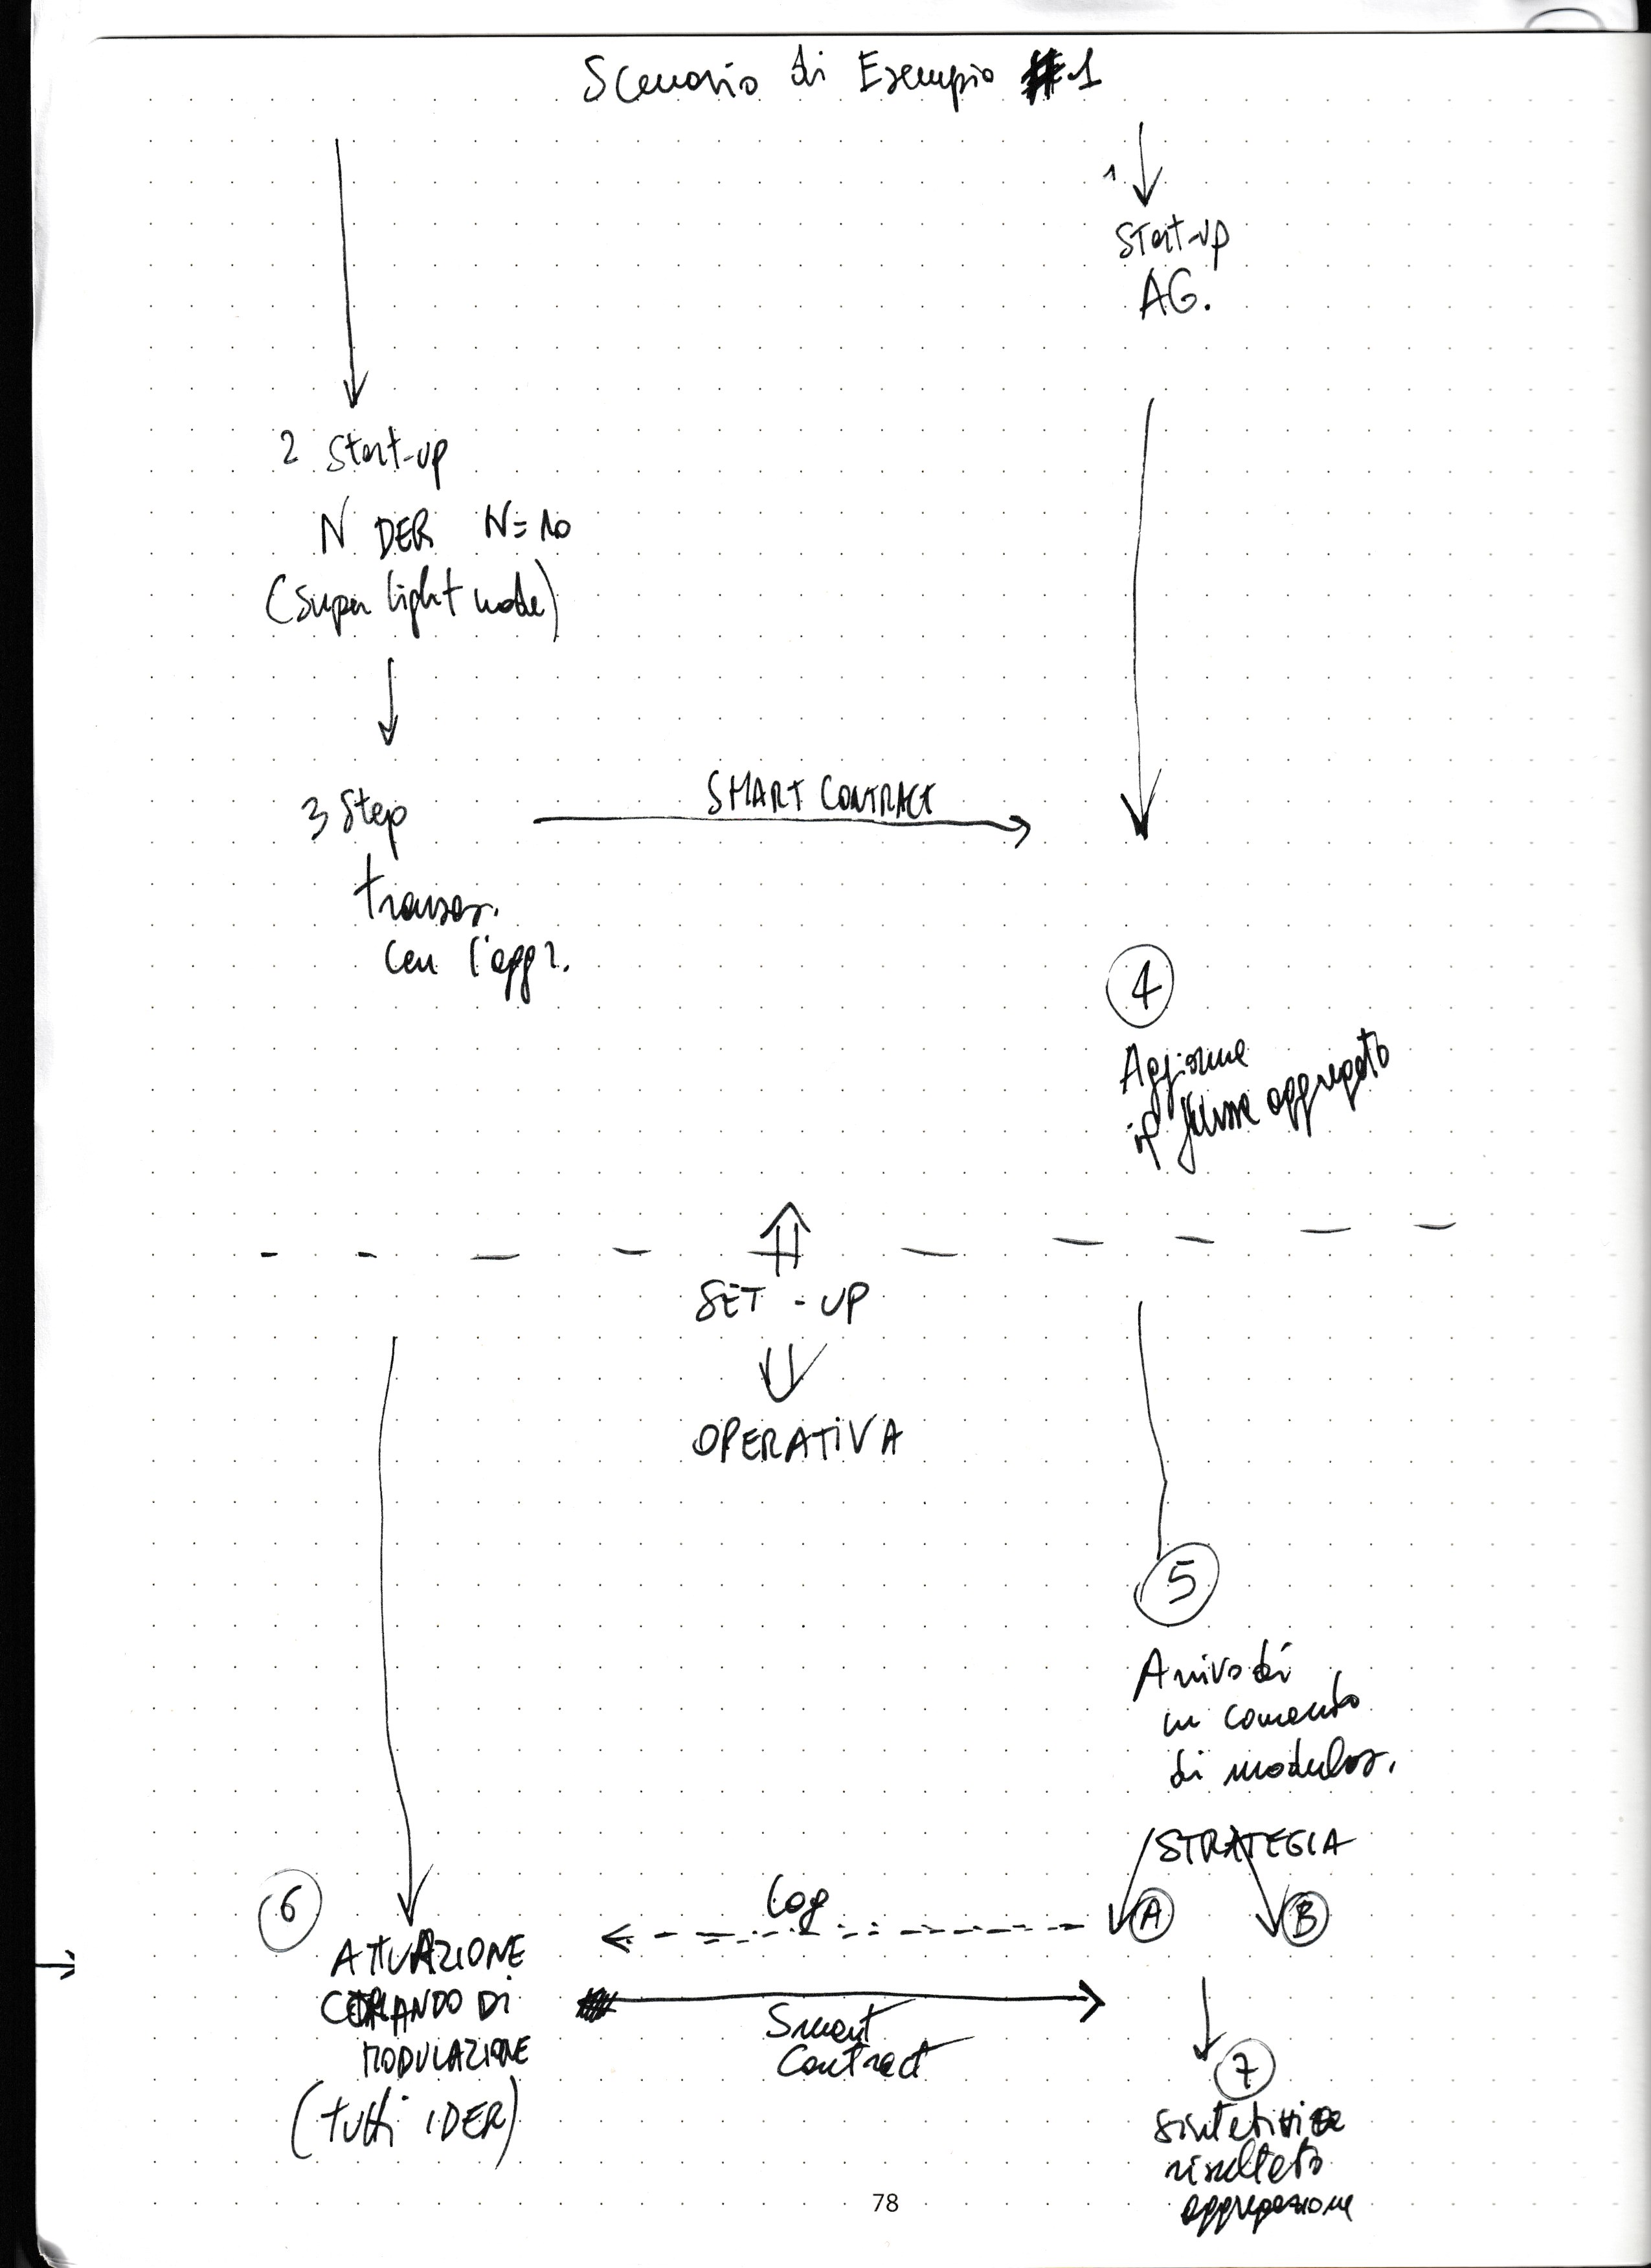 Scenario di Esempio #1
1.
Start-up
AG.
2 Start-up
N DER N=10
(super light node)
3 Step
SMART CONTRACT
transaz.
con l'aggr.
4
Aggiorna
il aggregato
SET-UP
OPERATIVA
5
Arrivo di
un comando
di modulaz.
STRATEGIA
A
B
6
Log
ATTUAZIONE
COMANDO DI
MODULAZIONE
(tutti i DER)
Smart
Contract
7
risultato
aggregazione
78